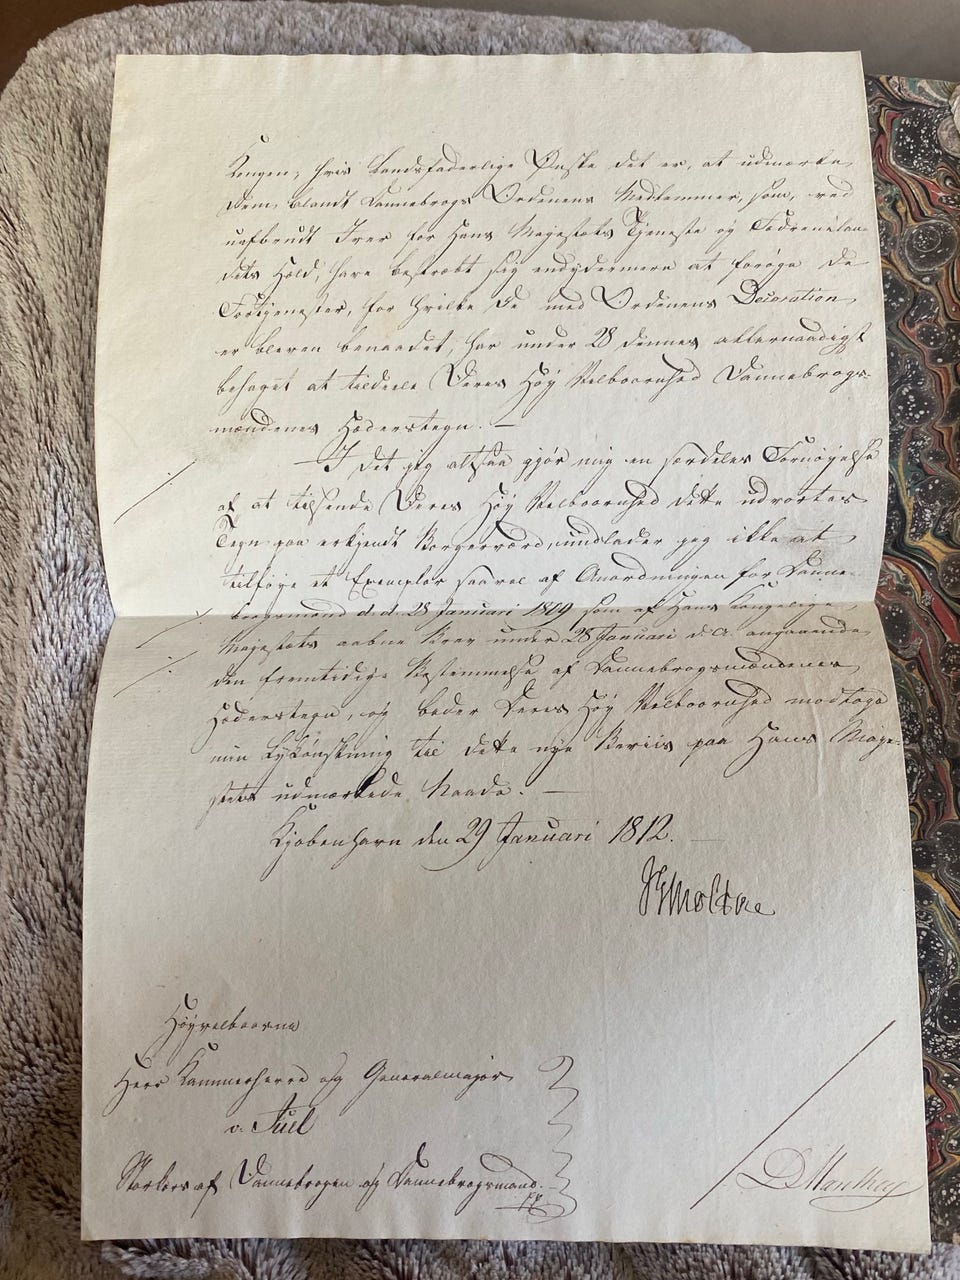 Kongen, hvis Landsfaderlige Ønske det er, at udmærke
dem, blandt Dannebrogs Ordenens Medlemmer, som, ved
uafbrudt Iver for Hans Majestæts Tjeneste og Fædrenelan-
dets Held, have bestræbt sig endydermere at forøge de
Fortjenester, for hvilke de med Ordenens Decoration
er bleven benaadet, har under 28 dennes allernaadigst
behaget at tildeele Deres Høy Velbaarenhed Dannebrogs-
mændenes Hæderstegn. —
— I det jeg altsaa gjør mig en særdeles Fornøyelse
af at tilsende Deres Høy Velbaarenhed dette udvortes
Tegn paa erkjendt Borgerværd, undlader jeg ikke at
tilføye et Exemplar saavel af Anordningen for Danne-
brogsmænd d. d. 28 Januari 1809 som af Hans Kongelige
Majestæts aabne Brev under 28 Januari d. A. angaaende
den fremtidige Bestemmelse af Dannebrogsmændenes
Hæderstegn, og beder Deres Høy Velbaarenhed modtage
min Lykønskning til dette nye Beviis paa Hans Maje-
stæts udmærkede Naade. —
Kjøbenhavn den 29 Januari 1812. —
Moltke
Høyvelbaarne
Herr Kammerherre og Generalmajor
v. Juel
Storkors af Dannebrogen og Dannebrogsmand.
D Manthey